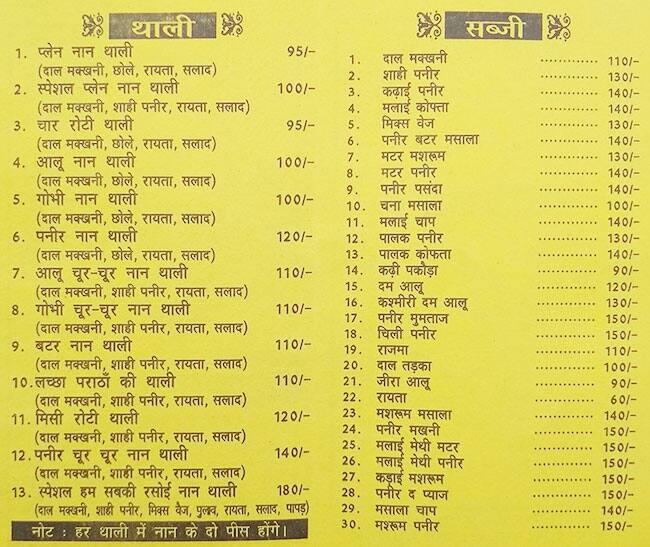 थाली
1. प्लेन नान थाली 95/-
(दाल मक्खनी, छोले, रायता, सलाद)
2. स्पेशल प्लेन नान थाली 100/-
(दाल मक्खनी, शाही पनीर, रायता, सलाद)
3. चार रोटी थाली 95/-
(दाल मक्खनी, छोले, रायता, सलाद)
4. आलू नान थाली 100/-
(दाल मक्खनी, छोले, रायता, सलाद)
5. गोभी नान थाली 100/-
(दाल मक्खनी, छोले, रायता, सलाद)
6. पनीर नान थाली 120/-
(दाल मक्खनी, छोले, रायता, सलाद)
7. आलू चूर-चूर नान थाली 110/-
(दाल मक्खनी, शाही पनीर, रायता, सलाद)
8. गोभी चूर-चूर नान थाली 110/-
(दाल मक्खनी, शाही पनीर, रायता, सलाद)
9. बटर नान थाली 110/-
(दाल मक्खनी, शाही पनीर, रायता, सलाद)
10. लच्छा पराठाँ की थाली 110/-
(दाल मक्खनी, शाही पनीर, रायता, सलाद)
11. मिसी रोटी थाली 120/-
(दाल मक्खनी, शाही पनीर, रायता, सलाद)
12. पनीर चूर चूर नान थाली 140/-
(दाल मक्खनी, शाही पनीर, रायता, सलाद)
13. स्पेशल हम सबकी रसोई नान थाली 180/-
(दाल मक्खनी, शाही पनीर, मिक्स वैज, पुलाव, रायता, सलाद, पापड़)
नोट : हर थाली में नान के दो पीस होंगे।
सब्जी
1. दाल मक्खनी ............ 110/-
2. शाही पनीर ............ 130/-
3. कढ़ाई पनीर ............ 140/-
4. मलाई कोफ्ता ............ 140/-
5. मिक्स वेज ............ 130/-
6. पनीर बटर मसाला ............ 140/-
7. मटर मशरूम ............ 130/-
8. मटर पनीर ............ 140/-
9. पनीर पसंदा ............ 140/-
10. चना मसाला ............ 100/-
11. मलाई चाप ............ 140/-
12. पालक पनीर ............ 130/-
13. पालक कोफता ............ 140/-
14. कढ़ी पकौड़ा ............ 90/-
15. दम आलू ............ 120/-
16. कश्मीरी दम आलू ............ 130/-
17. पनीर मुमताज ............ 150/-
18. चिली पनीर ............ 150/-
19. राजमा ............ 110/-
20. दाल तड़का ............ 100/-
21. जीरा आलू ............ 90/-
22. रायता ............ 60/-
23. मशरूम मसाला ............ 140/-
24. पनीर मखनी ............ 150/-
25. मलाई मेथी मटर ............ 150/-
26. मलाई मेथी पनीर ............ 150/-
27. कड़ाई मशरूम ............ 150/-
28. पनीर द प्याज ............ 150/-
29. मसाला चाप ............ 140/-
30. मश्रूम पनीर ............ 150/-